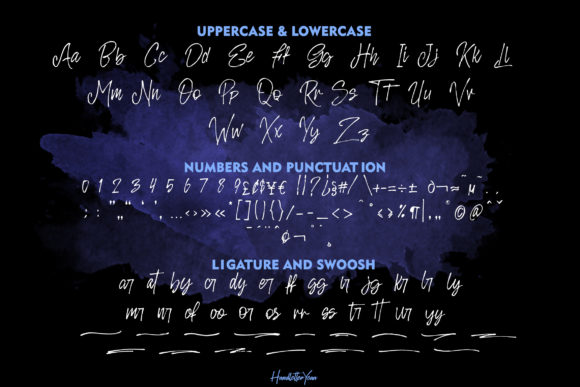 UPPERCASE & LOWERCASE
Aa Bb Cc Dd Ee Ff Gg Hh Ii Jj Kk Ll
Mm Nn Oo Pp Qq Rr Ss Tt Uu Vv
Ww Xx Yy Zz
NUMBERS AND PUNCTUATION
0 1 2 3 4 5 6 7 8 9 £ ¢ ¥ € ! ¡ ? ¿ § # / \ + - = ÷ ±
; : " „ ' , … < > » « " * [ ] ( ) { } / - – _ < > % ¶ | © @
LIGATURE AND SWOOSH
ar at by cr dy er ff gg ir jg kr lr ly
mr nr of oo or os rr ss tr tt ur yy
HandletterYean